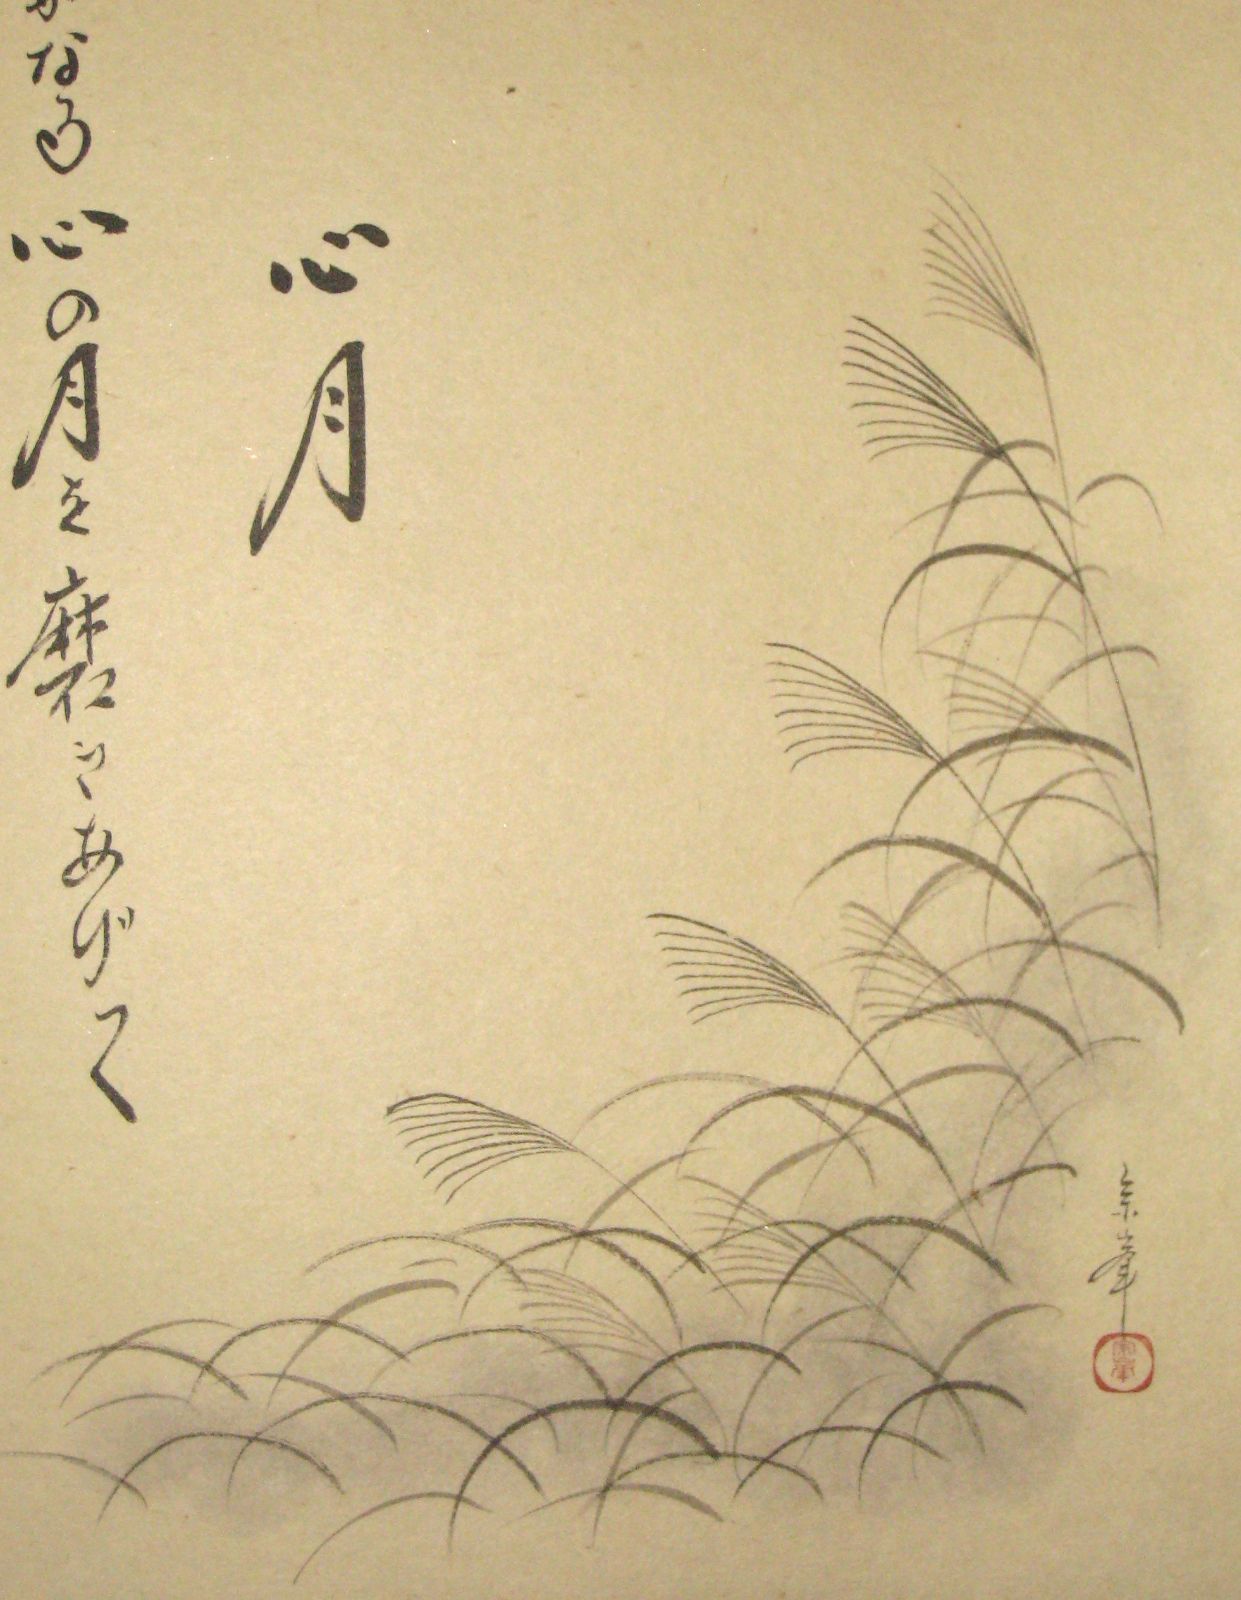 心月
なる心の月を磨きあげて